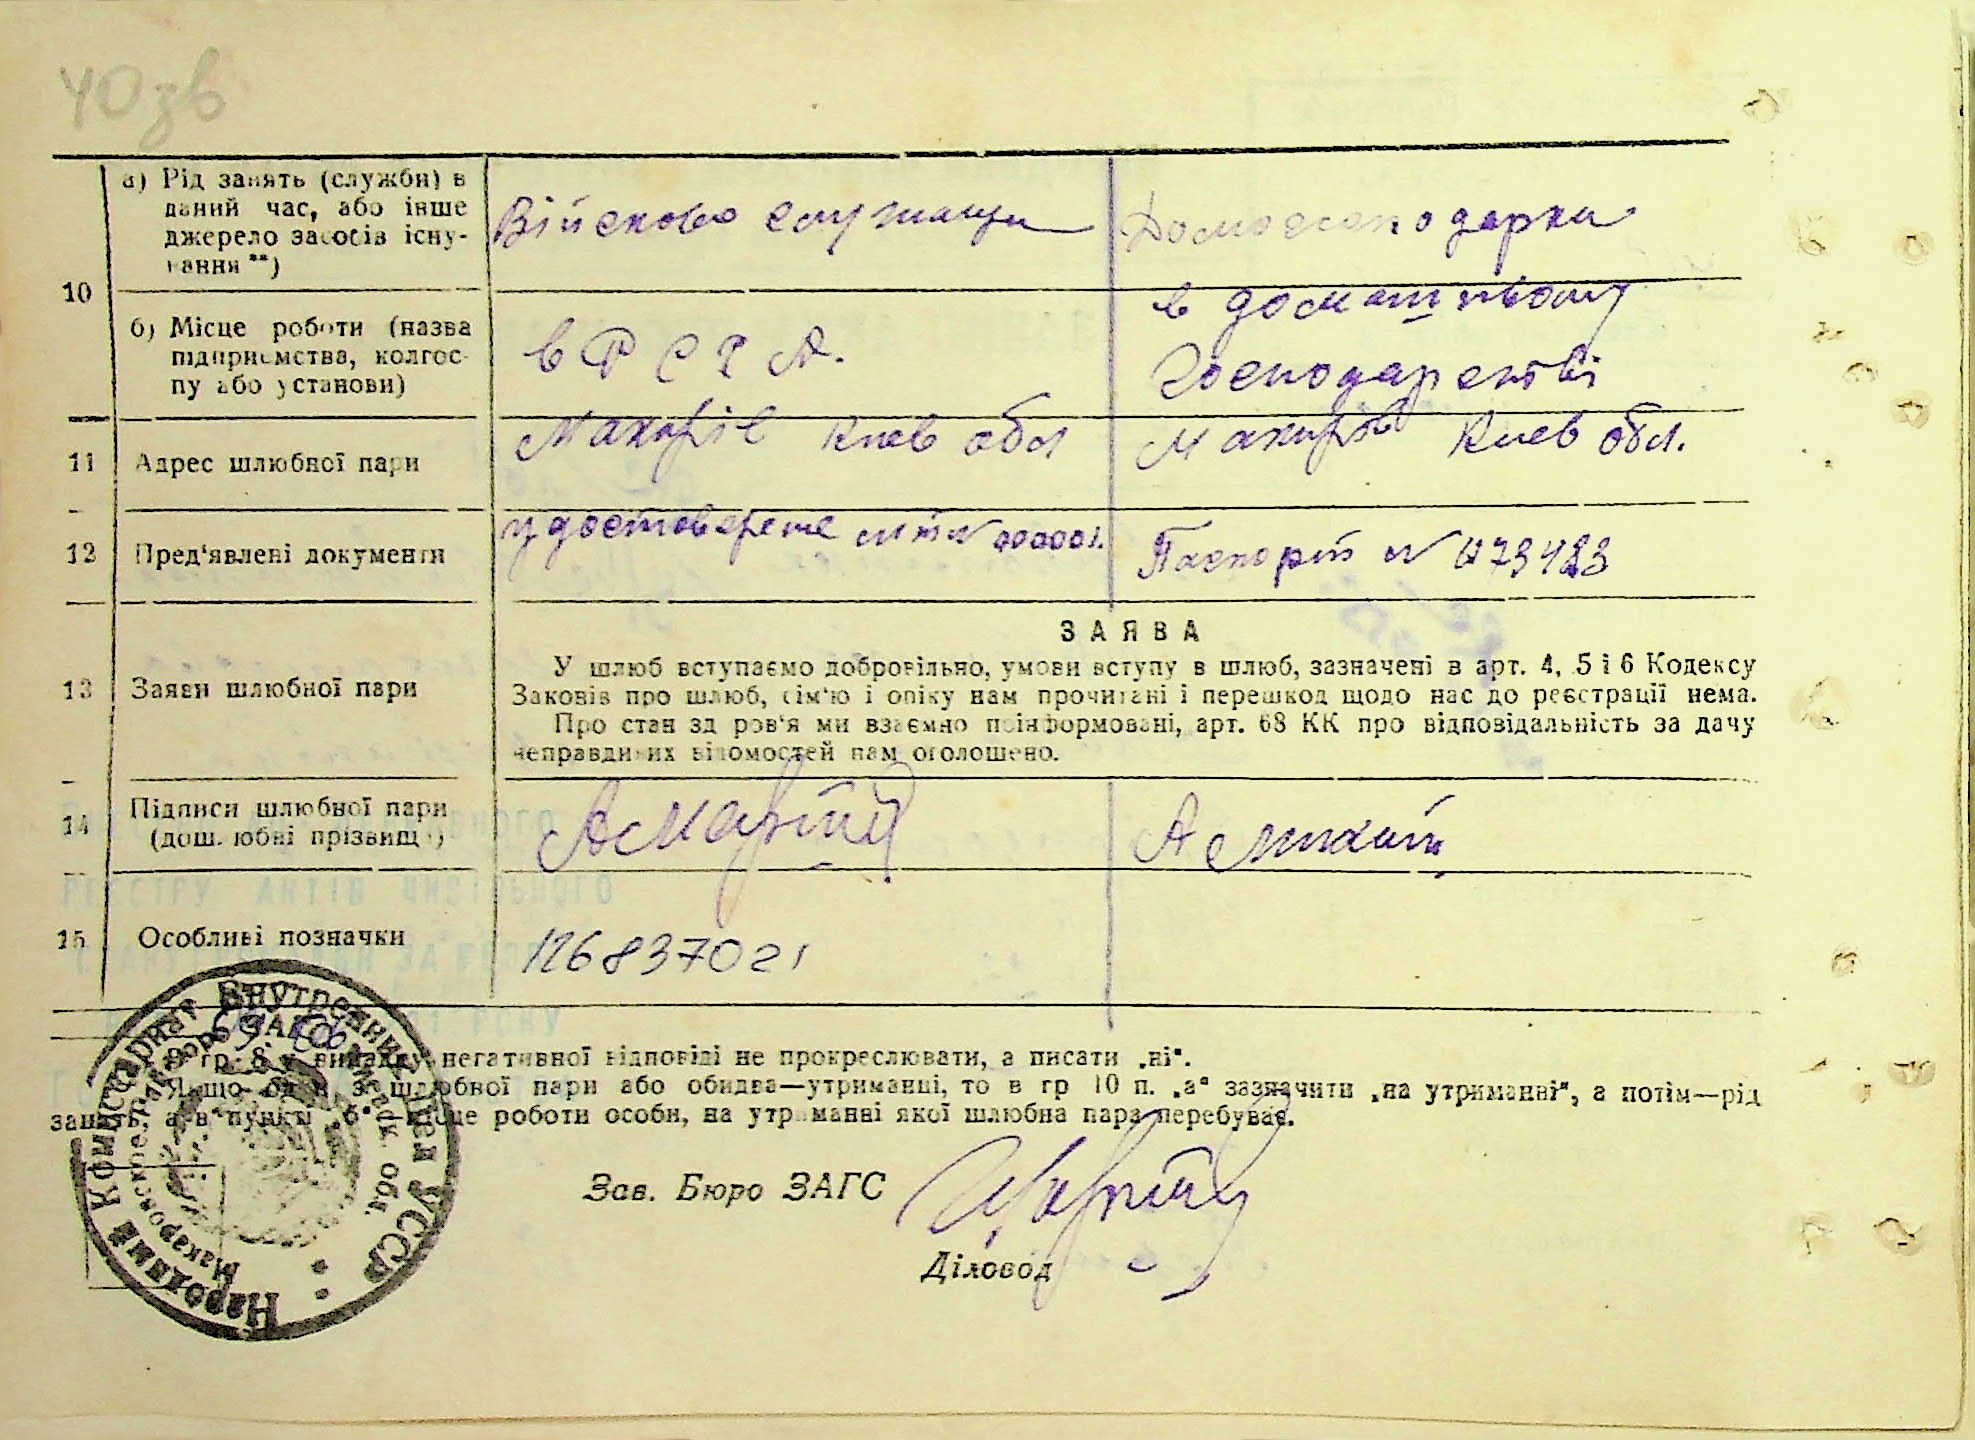 40зв
10
а) Рід занять (служби) в
даний час, або інше
джерело засобів існу-
вання **)
Військово служащи
Домогосподарки
б) Місце роботи (назва
підприємства, колгос-
пу або установи)
в Р С Ч А.
в домашньому
господарстві
11
Адрес шлюбної пари
Макарів Киев обл
Макарів Киев обл.
12
Пред'явлені документи
Паспорт №
13
Заяви шлюбної пари
ЗАЯВА
У шлюб вступаємо добровільно, умови вступу в шлюб, зазначені в арт. 4, 5 і 6 Кодексу
Законів про шлюб, сім'ю і опіку нам прочитані і перешкод щодо нас до реєстрації нема.
Про стан здоров'я ми взаємно поінформовані, арт. 68 КК про відповідальність за дачу
неправдивих відомостей нам оголошено.
14
Підписи шлюбної пари
(дошлюбні прізвища)
15
Особливі позначки
126837021
В гр. 8 у випадку негативної відповіді не прокреслювати, а писати „ні".
Якщо один з шлюбної пари або обидва—утриманці, то в гр 10 п. „а" зазначити „на утриманні", а потім—рід
занять, а в пункті „б" місце роботи особи, на утриманні якої шлюбна пара перебуває.
Зав. Бюро ЗАГС
Діловод
Народний Комиссариат Внутренних Дел УССР